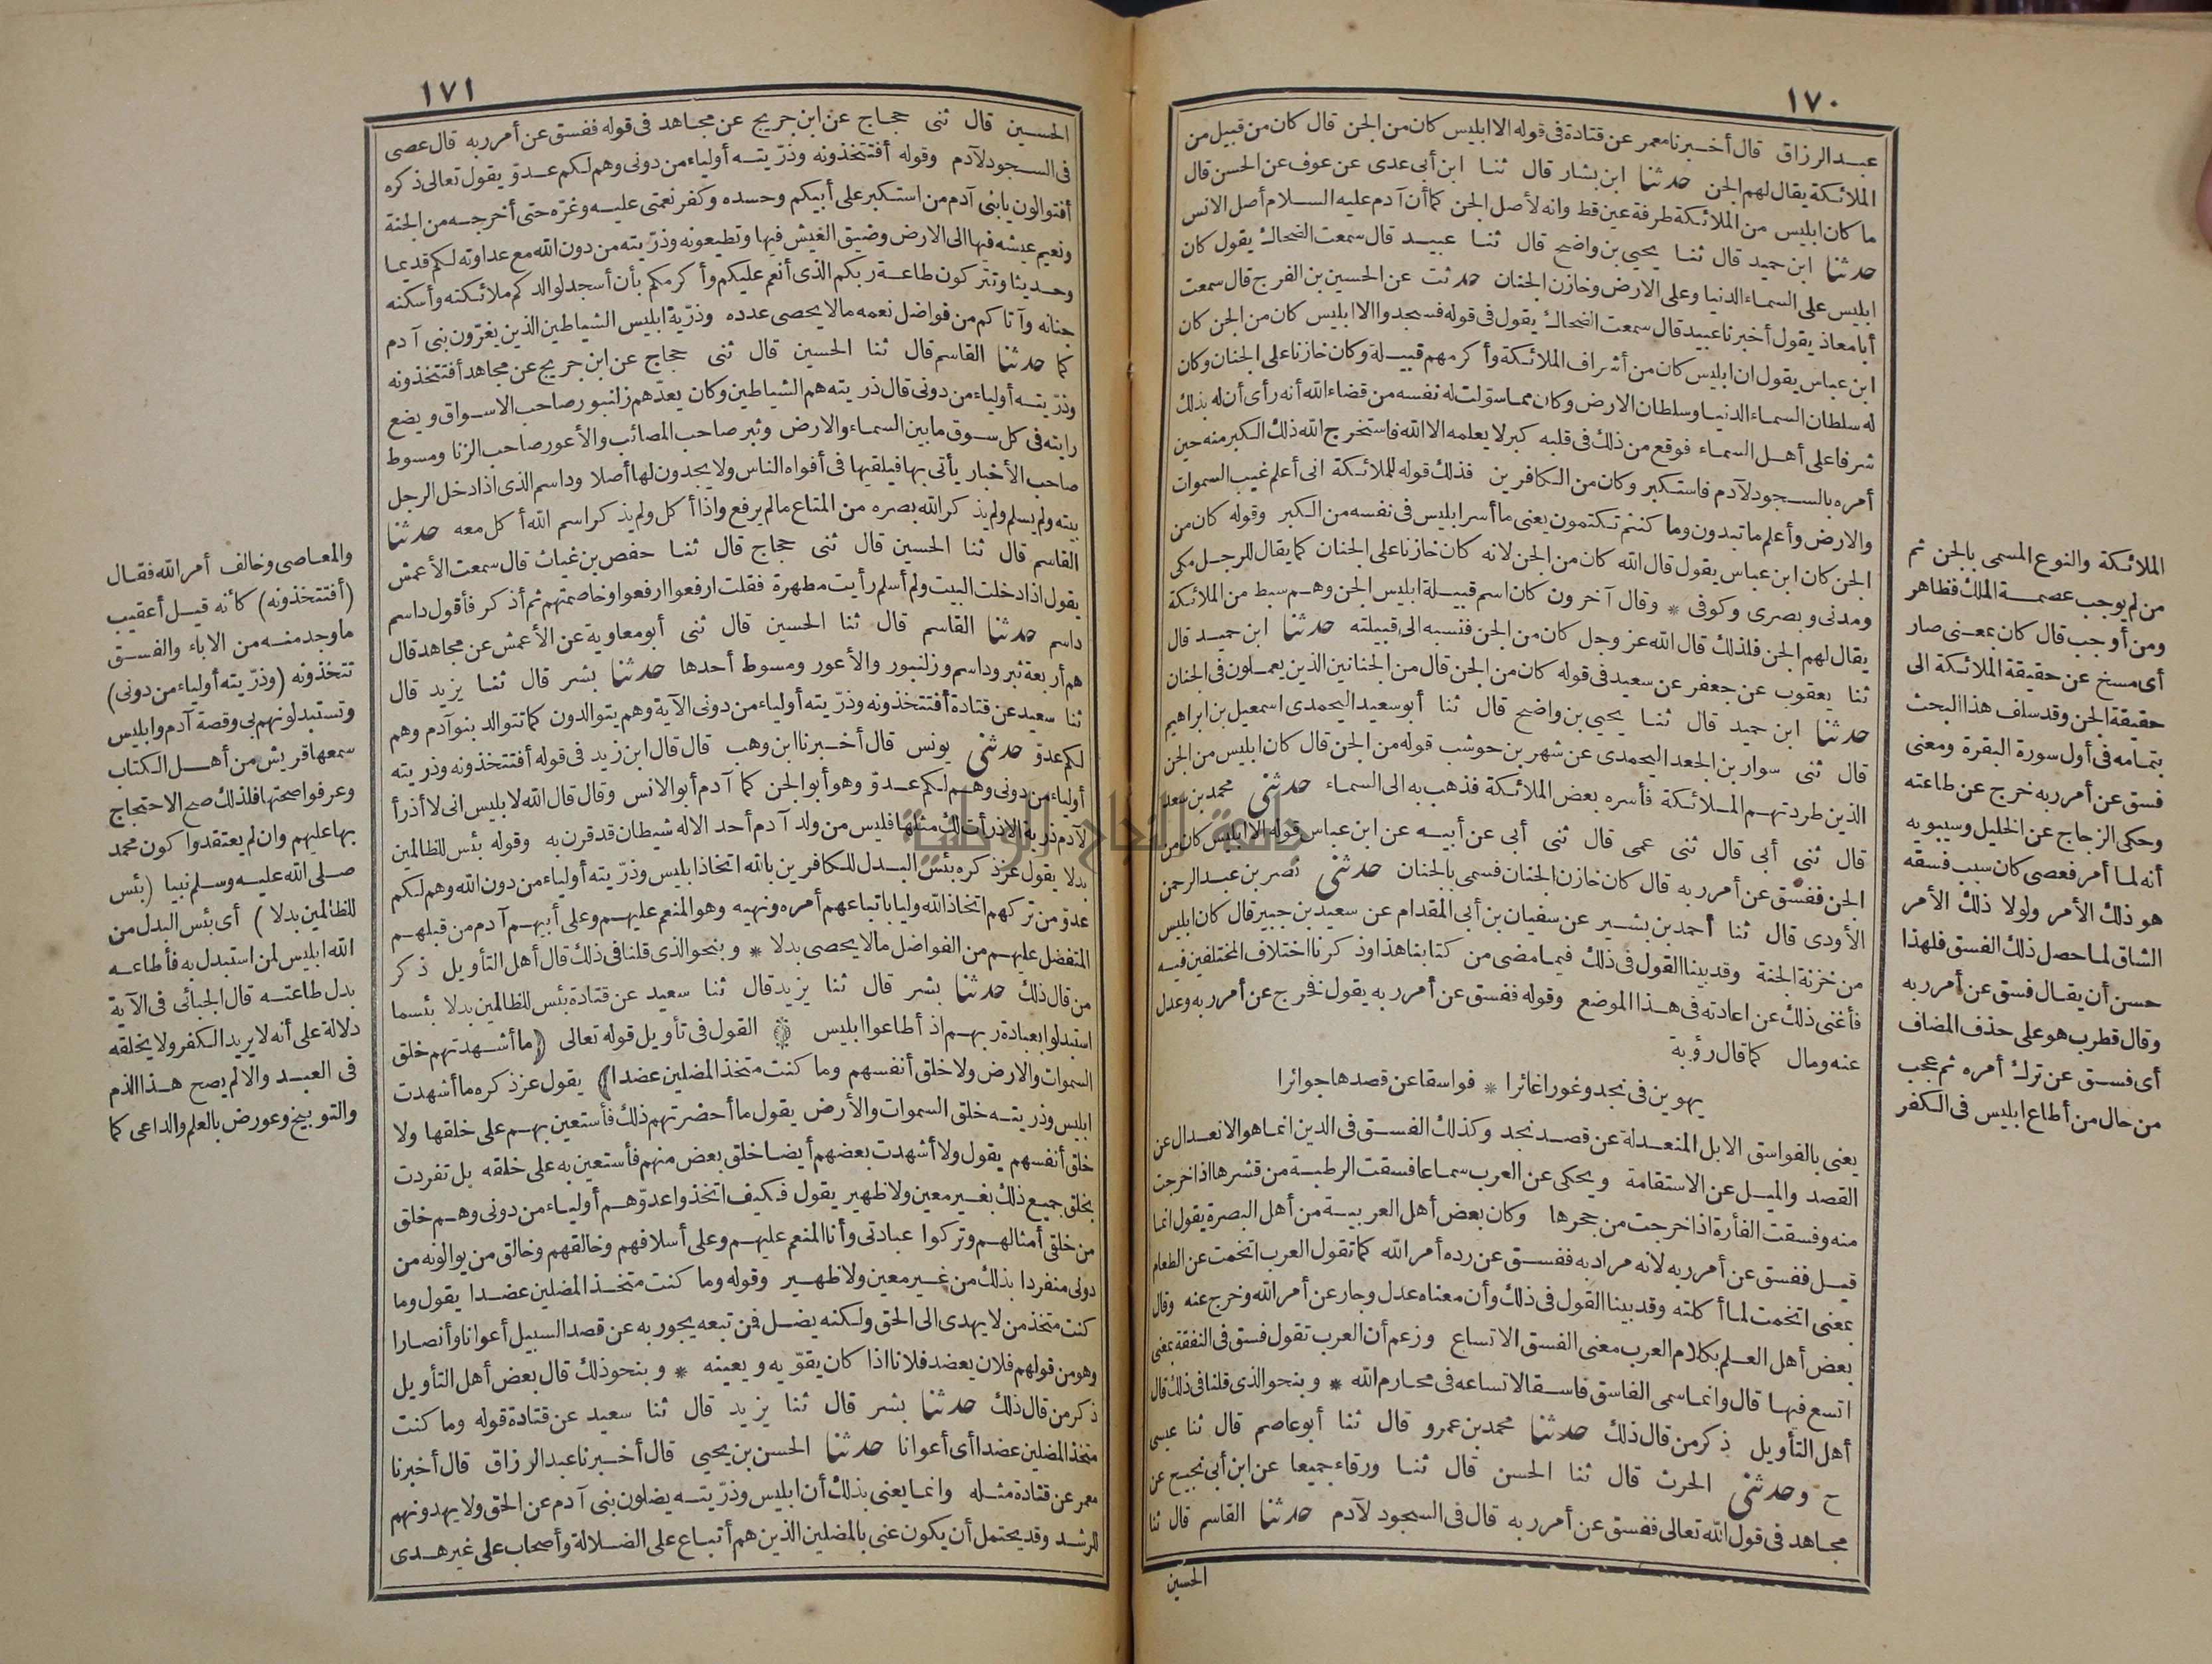 ١٧٠
عبد الرزاق قال أخبرنا معمر عن قتادة فى قوله الا ابليس كان من الجن قال كان من قبيل من
الملائكة يقال لهم الجن حدثنا ابن بشار قال ثنا ابن أبى عدى عن عوف عن الحسن قال
ما كان ابليس من الملائكة طرفة عين قط وانه لأصل الجن كما أن آدم عليه السلام أصل الانس
حدثنا ابن حميد قال ثنا يحيى بن واضح قال ثنا عبيد قال سمعت الضحاك يقول كان
ابليس على السماء الدنيا وعلى الارض وخازن الجنان حدثت عن الحسين بن الفرج قال سمعت
أبا معاذ يقول أخبرنا عبيد قال سمعت الضحاك يقول فى قوله فسجدوا الا ابليس كان من الجن كان
ابن عباس يقول ان ابليس كان من أشراف الملائكة وأكرمهم قبيلة وكان خازنا على الجنان وكان
له سلطان السماء الدنيا وسلطان الارض وكان مما سولت له نفسه من قضاء الله أنه رأى أن له بذلك
شرفا على أهل السماء فوقع من ذلك فى قلبه كبر لا يعلمه الا الله فاستخرج الله ذلك الكبر منه حين
أمره بالسجود لآدم فاستكبر وكان من الكافرين فذلك قوله للملائكة انى أعلم غيب السموات
والارض وأعلم ما تبدون وما كنتم تكتمون يعنى ما أسر ابليس فى نفسه من الكبر وقوله كان من
الجن كان ابن عباس يقول قال الله كان من الجن لانه كان خازنا على الجنان كما يقال للرجل مكى
ومدنى وبصرى وكوفى * وقال آخرون كان اسم قبيلة ابليس الجن وهم سبط من الملائكة
يقال لهم الجن فلذلك قال الله عز وجل كان من الجن فنسبه الى قبيلته حدثنا ابن حميد قال
ثنا يعقوب عن جعفر عن سعيد فى قوله كان من الجن قال من الجنانين الذين يعملون فى الجنان
حدثنا ابن حميد قال ثنا يحيى بن واضح قال ثنا أبو سعيد اليحمدى اسمعيل بن ابراهيم
قال ثنى سوار بن الجعد اليحمدى عن شهر بن حوشب قوله من الجن قال كان ابليس من الجن
الذين طردتهم الملائكة فأسره بعض الملائكة فذهب به الى السماء حدثنى محمد بن سعد
قال ثنى أبى قال ثنى عمى قال ثنى أبى عن أبيه عن ابن عباس قوله الا ابليس كان من
الجن ففسق عن أمر ربه قال كان خازن الجنان فسمى بالجنان حدثنى نصر بن عبد الرحمن
الأودى قال ثنا أحمد بن بشير عن سفيان بن أبى المقدام عن سعيد بن جبير قال كان ابليس
من خزنة الجنة وقد بينا القول فى ذلك فيما مضى من كتابنا هذا وذكرنا اختلاف المختلفين فيه
فأغنى ذلك عن اعادته فى هذا الموضع وقوله ففسق عن أمر ربه يقول فخرج عن أمر ربه وعدل
عنه ومال كما قال رؤبة
يهوين فى نجد وغورا غائرا * فواسقا عن قصدها جوائرا
يعنى بالفواسق الابل المنعدلة عن قصد نجد وكذلك الفسق فى الدين انما هو الانعدال عن
القصد والميل عن الاستقامة ويحكى عن العرب سماعا فسقت الرطبة من قشرها اذا خرجت
منه وفسقت الفأرة اذا خرجت من جحرها وكان بعض أهل العربية من أهل البصرة يقول انما
قيل ففسق عن أمر ربه لانه مراد به ففسق عن رده أمر الله كما تقول العرب اتخمت عن الطعام
بمعنى اتخمت لما أكلته وقد بينا القول فى ذلك وأن معناه عدل وجار عن أمر الله وخرج عنه وقال
بعض أهل العلم بكلام العرب معنى الفسق الاتساع وزعم أن العرب تقول فسق فى النفقة بمعنى
اتسع فيها قال وانما سمى الفاسق فاسقا لاتساعه فى محارم الله * وبنحو الذى قلنا فى ذلك قال
أهل التأويل ذكر من قال ذلك حدثنا محمد بن عمرو قال ثنا أبو عاصم قال ثنا عيسى
ح وحدثنى الحرث قال ثنا الحسن قال ثنا ورقاء جميعا عن ابن أبى نجيح عن
مجاهد فى قول الله تعالى ففسق عن أمر ربه قال فى السجود لآدم حدثنا القاسم قال ثنا
الحسين
الملائكة والنوع المسمى بالجن ثم
من لم يوجب عصمة الملك فظاهر
ومن أوجب قال كان بمعنى صار
أى مسخ عن حقيقة الملائكة الى
حقيقة الجن وقد سلف هذا البحث
بتمامه فى أول سورة البقرة ومعنى
فسق عن أمر ربه خرج عن طاعته
وحكى الزجاج عن الخليل وسيبويه
أنه لما أمر فعصى كان سبب فسقه
هو ذلك الأمر ولولا ذلك الأمر
الشاق لما حصل ذلك الفسق فلهذا
حسن أن يقال فسق عن أمر ربه
وقال قطرب هو على حذف المضاف
أى فسق عن ترك أمره ثم عجب
من حال من أطاع ابليس فى الكفر
١٧١
الحسين قال ثنى حجاج عن ابن جريج عن مجاهد فى قوله ففسق عن أمر ربه قال عصى
فى السجود لآدم وقوله أفتتخذونه وذرّيته أولياء من دونى وهم لكم عدوّ يقول تعالى ذكره
أفتوالون يا بنى آدم من استكبر على أبيكم وحسده وكفر نعمتى عليه وغرّه حتى أخرجه من الجنة
ونعيم عيشه فيها الى الارض وضيق العيش فيها وتطيعونه وذرّيته من دون الله مع عداوته لكم قديما
وحديثا وتتركون طاعة ربكم الذى أنعم عليكم وأكرمكم بأن أسجد لوالدكم ملائكته وأسكنه
جنانه وآتاكم من فواضل نعمه ما لا يحصى عدده وذرّية ابليس الشياطين الذين يغرّون بنى آدم
كما حدثنا القاسم قال ثنا الحسين قال ثنى حجاج عن ابن جريج عن مجاهد أفتتخذونه
وذرّيته أولياء من دونى قال ذريته هم الشياطين وكان يعدّهم زلنبور صاحب الاسواق ويضع
رايته فى كل سوق ما بين السماء والارض وثبر صاحب المصائب والأعور صاحب الزنا ومسوط
صاحب الأخبار يأتى بها فيلقيها فى أفواه الناس ولا يجدون لها أصلا وداسم الذى اذا دخل الرجل
بيته ولم يسلم ولم يذكر الله بصره من المتاع ما لم يرفع واذا أكل ولم يذكر اسم الله أكل معه حدثنا
القاسم قال ثنا الحسين قال ثنى حجاج قال ثنا حفص بن غياث قال سمعت الأعمش
يقول اذا دخلت البيت ولم أسلم رأيت مطهرة فقلت ارفعوا ارفعوا وخاصمتهم ثم أذكر فأقول داسم
داسم حدثنا القاسم قال ثنا الحسين قال ثنى أبو معاوية عن الأعمش عن مجاهد قال
هم أربعة ثبر وداسم وزلنبور والأعور ومسوط أحدها حدثنا بشر قال ثنا يزيد قال
ثنا سعيد عن قتادة أفتتخذونه وذرّيته أولياء من دونى الآية وهم يتوالدون كما تتوالد بنو آدم وهم
لكم عدوّ حدثنى يونس قال أخبرنا ابن وهب قال قال ابن زيد فى قوله أفتتخذونه وذريته
أولياء من دونى وهم لكم عدوّ وهو أبو الجن كما آدم أبو الانس وقال قال الله لابليس انى لا أذرأ
لآدم ذرية الا ذرأت لك مثلها فليس من ولد آدم أحد الا له شيطان قد قرن به وقوله بئس للظالمين
بدلا يقول عز ذكره بئس البدل للكافرين بالله اتخاذ ابليس وذرّيته أولياء من دون الله وهم لكم
عدوّ من تركهم اتخاذ الله وليا باتباعهم أمره ونهيه وهو المنعم عليهم وعلى أبيهم آدم من قبلهم
المتفضل عليهم من الفواضل ما لا يحصى بدلا * وبنحو الذى قلنا فى ذلك قال أهل التأويل ذكر
من قال ذلك حدثنا بشر قال ثنا يزيد قال ثنا سعيد عن قتادة بئس للظالمين بدلا بئسما
استبدلوا بعبادة ربهم اذ أطاعوا ابليس ۞ القول فى تأويل قوله تعالى ﴿ما أشهدتهم خلق
السموات والارض ولا خلق أنفسهم وما كنت متخذ المضلين عضدا﴾ يقول عز ذكره ما أشهدت
ابليس وذريته خلق السموات والأرض يقول ما أحضرتهم ذلك فأستعين بهم على خلقها ولا
خلق أنفسهم يقول ولا أشهدت بعضهم أيضا خلق بعض منهم فأستعين به على خلقه بل تفردت
بخلق جميع ذلك بغير معين ولا ظهير يقول فكيف اتخذوا عدوّهم أولياء من دونى وهم خلق
من خلق أمثالهم وتركوا عبادتى وأنا المنعم عليهم وعلى أسلافهم وخالقهم وخالق من يوالونه من
دونى منفردا بذلك من غير معين ولا ظهير وقوله وما كنت متخذ المضلين عضدا يقول وما
كنت متخذ من لا يهدى الى الحق ولكنه يضل فمن تبعه يجور به عن قصد السبيل أعوانا وأنصارا
وهو من قولهم فلان يعضد فلانا اذا كان يقوّيه ويعينه * وبنحو ذلك قال بعض أهل التأويل
ذكر من قال ذلك حدثنا بشر قال ثنا يزيد قال ثنا سعيد عن قتادة قوله وما كنت
متخذ المضلين عضدا أى أعوانا حدثنا الحسن بن يحيى قال أخبرنا عبد الرزاق قال أخبرنا
معمر عن قتادة مثله وانما يعنى بذلك أن ابليس وذرّيته يضلون بنى آدم عن الحق ولا يهدونهم
للرشد وقد يحتمل أن يكون عنى بالمضلين الذين هم أتباع على الضلالة وأصحاب على غير هدى
والمعاصى وخالف أمر الله فقال
(أفتتخذونه) كأنه قيل أعقيب
ما وجد منه من الاباء والفسق
تتخذونه (وذرّيته أولياء من دونى)
وتستبدلونهم بى وقصة آدم وابليس
سمعها قريش من أهل الكتاب
وعرفوا صحتها فلذلك صح الاحتجاج
بها عليهم وان لم يعتقدوا كون محمد
صلى الله عليه وسلم نبيا (بئس
للظالمين بدلا) أى بئس البدل من
الله ابليس لمن استبدل به فأطاعه
بدل طاعته قال الجبائى فى الآية
دلالة على أنه لا يريد الكفر ولا يخلقه
فى العبد والا لم يصح هذا الذم
والتوبيخ وعورض بالعلم والداعى كما
جامعة النجاح الوطنية